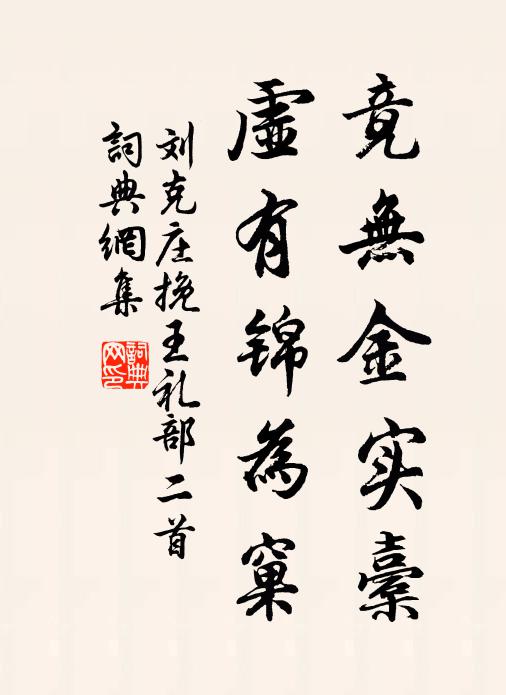 竟無金实橐
虛有锦為窠
刘克庄挽王礼部二首
詞典網集
詞典网印